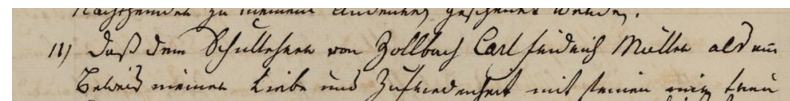 Nachstehender zu meinem Andenken geschenkt werden.
11) Daß dem Schullehrer von Zollbach Carl Friedrich Müller als ein
Beweis meiner Liebe und Zufriedenheit mit seinen mir treu